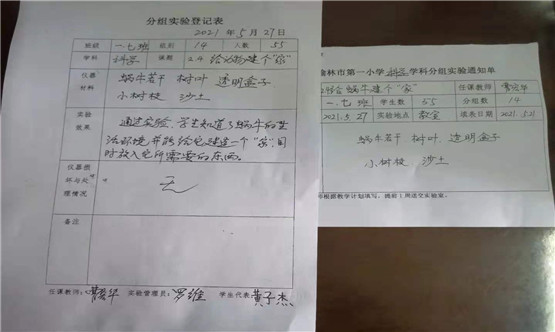 分组实验登记表
2021 年 5 月 27 日
班级 一.七班 组别 14 人数 55
学科 科学 课题 2.4 给动物建个"家"
仪器材料 蜗牛若干 树叶 透明盒子
小树枝 沙土
实验效果 通过实验,学生知道了蜗牛的生
活环境,并能给它建造一个"家",同
时放入它所需要的东西。
仪器损坏与处理情况 无
备注
任课教师: 实验管理员: 罗维 学生代表: 黄子杰
榆林市第一小学 科学 学科分组实验通知单
给蜗牛建个"家" 任课教师
一.七班 学生数 55 分组数 14
2021.5.27 实验地点 教室 填表日期 2021.5.21
蜗牛若干 树叶 透明盒子
小树枝 沙土
根据教学计划填写,提前1周送交实验室。